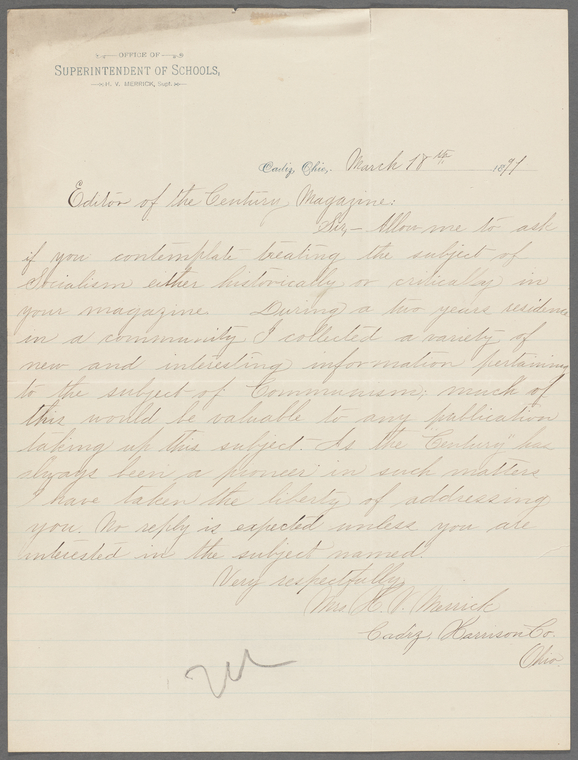 OFFICE OF
SUPERINTENDENT OF SCHOOLS,
H. V. MERRICK, Supt.
Cadiz, Ohio, March 18th 1891
Editor of the Century Magazine:
Sir,- Allow me to ask
if you contemplate treating the subject of
Socialism either historically or critically in
your magazine. During a two years residence
in a community I collected a variety of
new and interesting information pertaining
to the subject of Communism; much of
this would be valuable to any publication
taking up this subject. As the "Century" has
always been a pioneer in such matters
I have taken the liberty of addressing
you. No reply is expected unless you are
interested in the subject named.
Very respectfully,
Mrs H. V. Merrick
Cadiz, Harrison Co.
Ohio